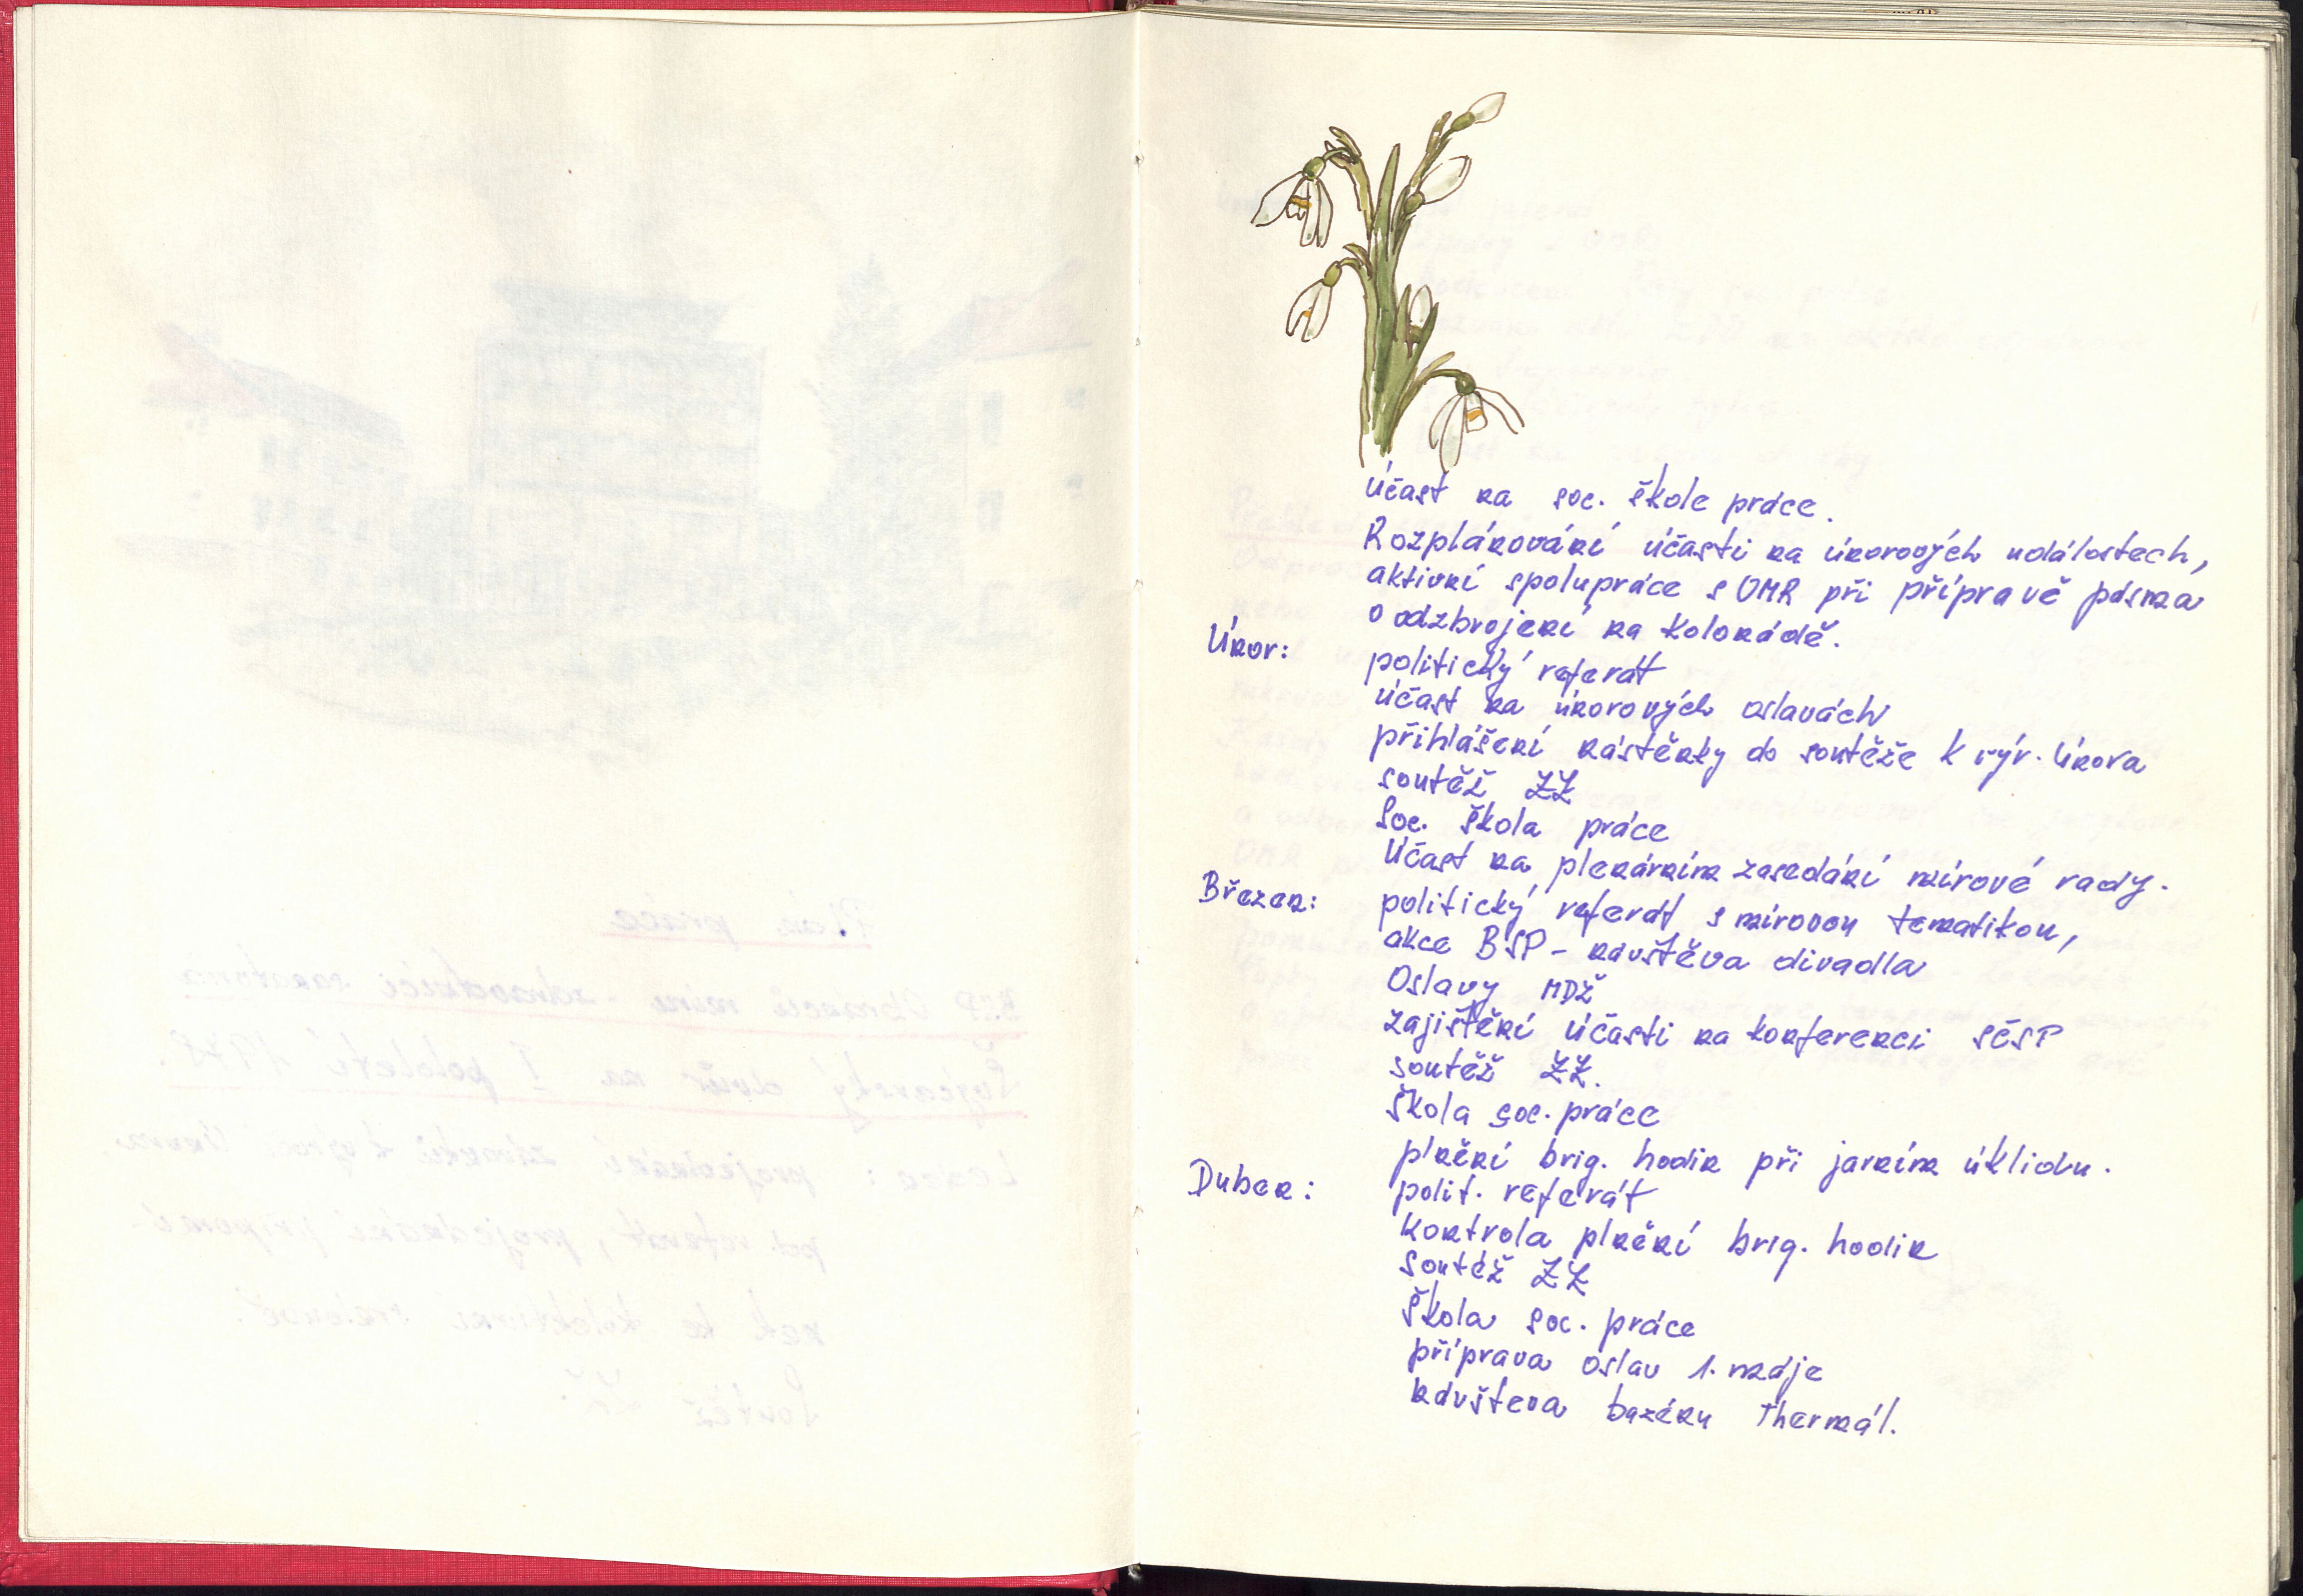 Účast na soc. škole práce.
Rozplánování účasti na únorových událostech,
aktivní spolupráce s OMR při přípravě pásma
o odzbrojení na kolonádě.
Únor: politický referát
účast na únorových oslavách
přihlášení nástěnky do soutěže k výr. Února
soutěž ZZ
Soc. škola práce
Účast na plenárním zasedání mírové rady.
Březen: politický referát s mírovou tematikou,
akce BSP - návštěva divadla
Oslavy MDŽ
zajištění účasti na konferenci SČSP
soutěž ZZ.
Škola soc. práce
plnění brig. hodin při jarním úklidu.
Duben: polit. referát
Kontrola plnění brig. hodin
Soutěž ZZ
Škola soc. práce
příprava oslav 1. máje
návšteva bazénu Thermál.